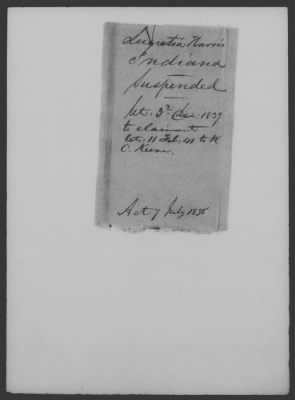 Lucretia Harris
Indiana
Suspended
let. 3d Dec 1839
to claimant
let. 11 Feb. 41 to W.
C. Keene.
Act 7 July 1838